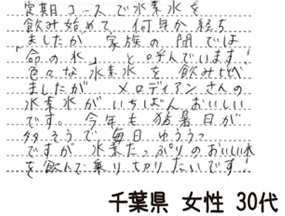 定期コースで水素水を
飲み始めて 何年か経ち
ましたが 家族の間では
「命の水」と呼んでいます!
色々な水素水を飲み比べ
ましたが メロディアンさんの
水素水がいちばんおいしい
です。今年も猛暑日が
多そうで毎日ゆううつ
ですが 水素たっぷりのおいしい水
を飲んで乗り切りたいです!
千葉県 女性 30代